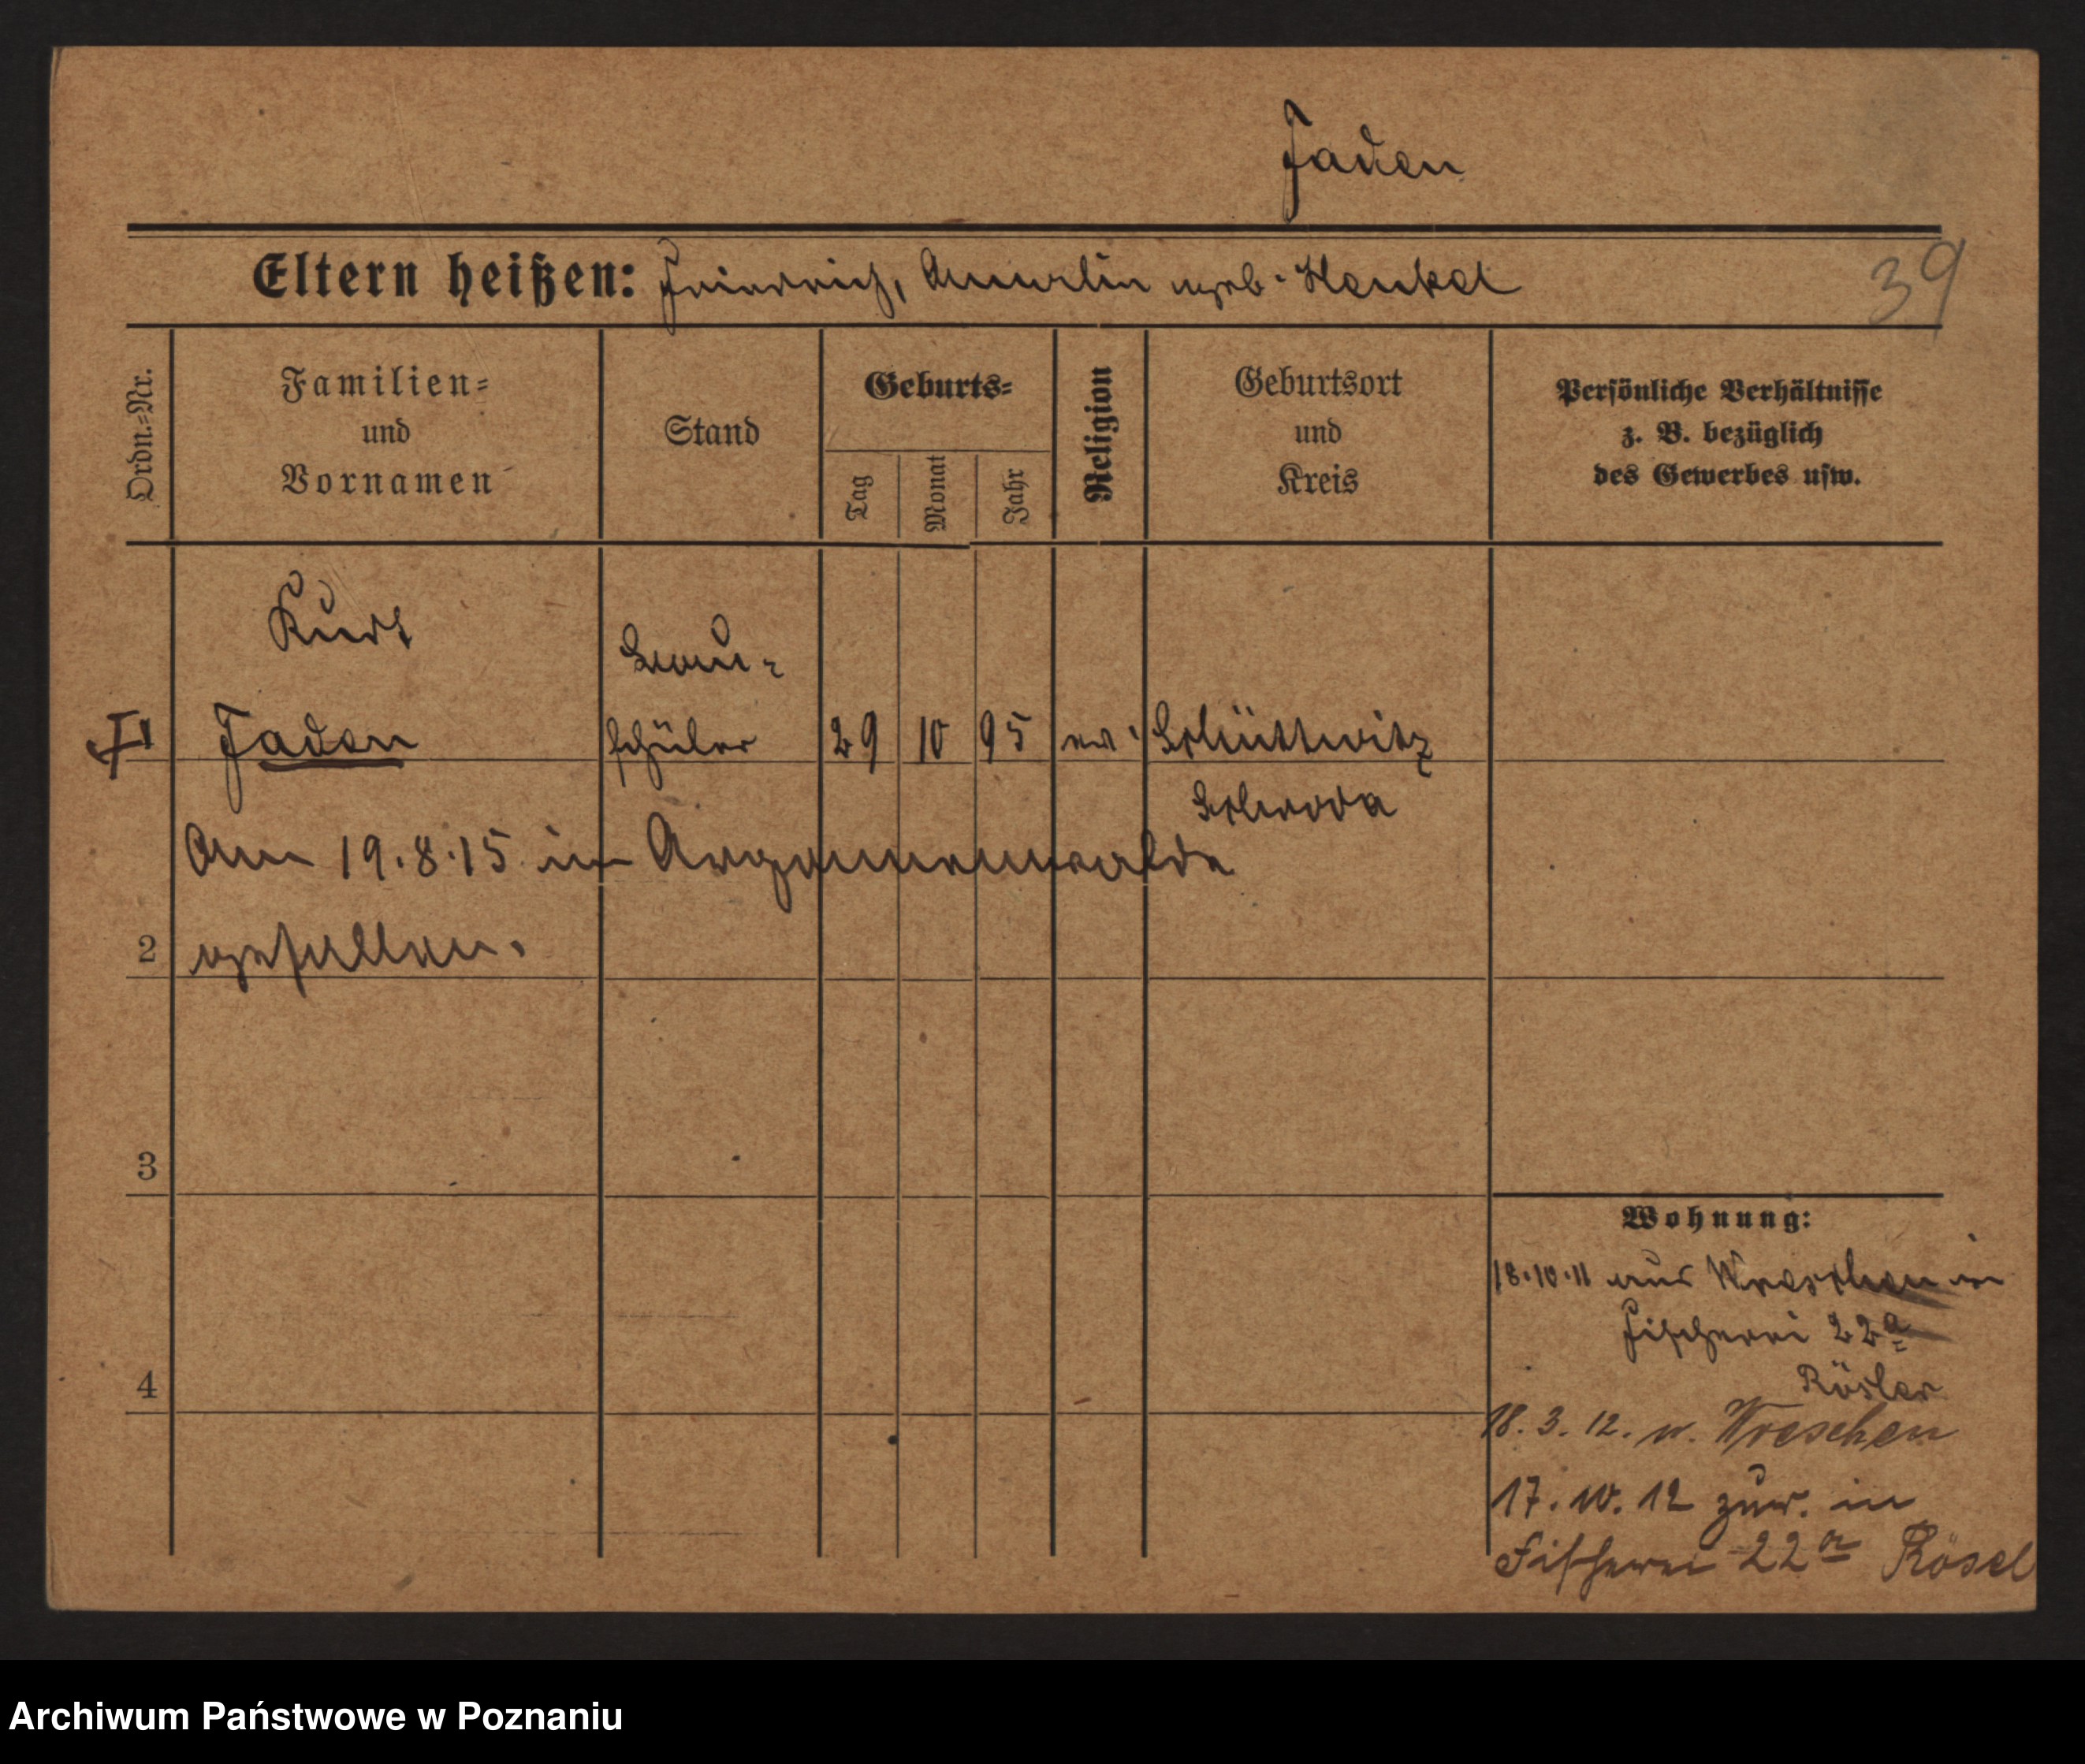 Faden
Eltern heißen: Friedrich, Amalie geb. Henkel
39
Ordn.=Nr.
Familien=
und
Vornamen
Stand
Geburts=
Tag
Monat
Jahr
Religion
Geburtsort
und
Kreis
Persönliche Verhältnisse
z. B. bezüglich
des Gewerbes usw.
Kurt
Bau-
1 Faden schüler 29 10 95 ev. Schüttwitz
Schroda
Am 19.8.15 im Argonnenwalde
2 gefallen.
3
4
Wohnung:
18.10.11 aus Wreschen in
Fischerei 22a
Rösler
18. 3. 12. n. Wreschen
17. 10. 12 zur. in
Fischerei 22a Rösel
Archiwum Państwowe w Poznaniu